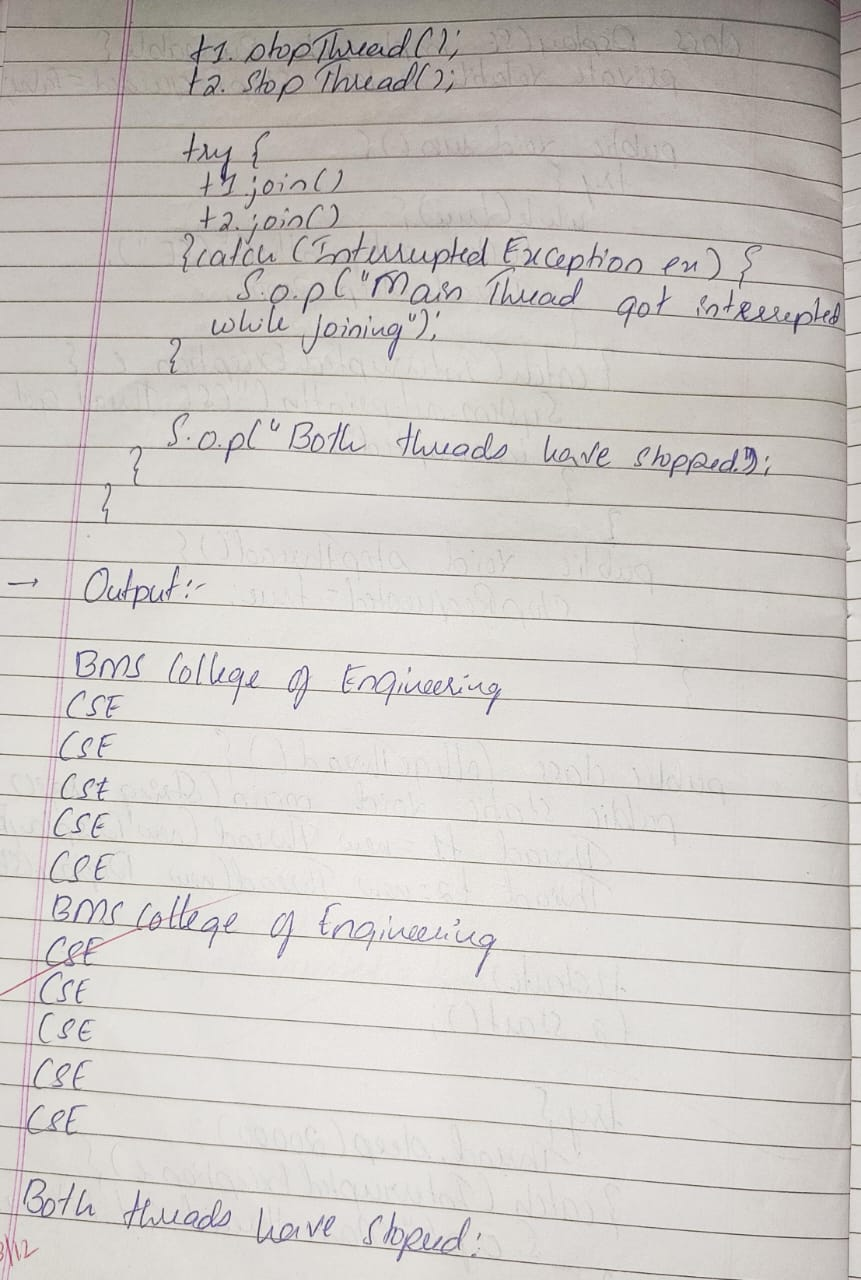 t1. stopThread();
t2. stopThread();
try {
t1.join()
t2.join()
}catch (Interrupted Exception ex) {
S.o.p("Main Thread got interrupted
while joining");
}
S.o.p("Both threads have stopped.");
}
}
→ Output:-
BMS College of Engineering
CSE
CSE
CSE
CSE
CSE
BMS College of Engineering
CSE
CSE
CSE
CSE
CSE
Both threads have stoped: